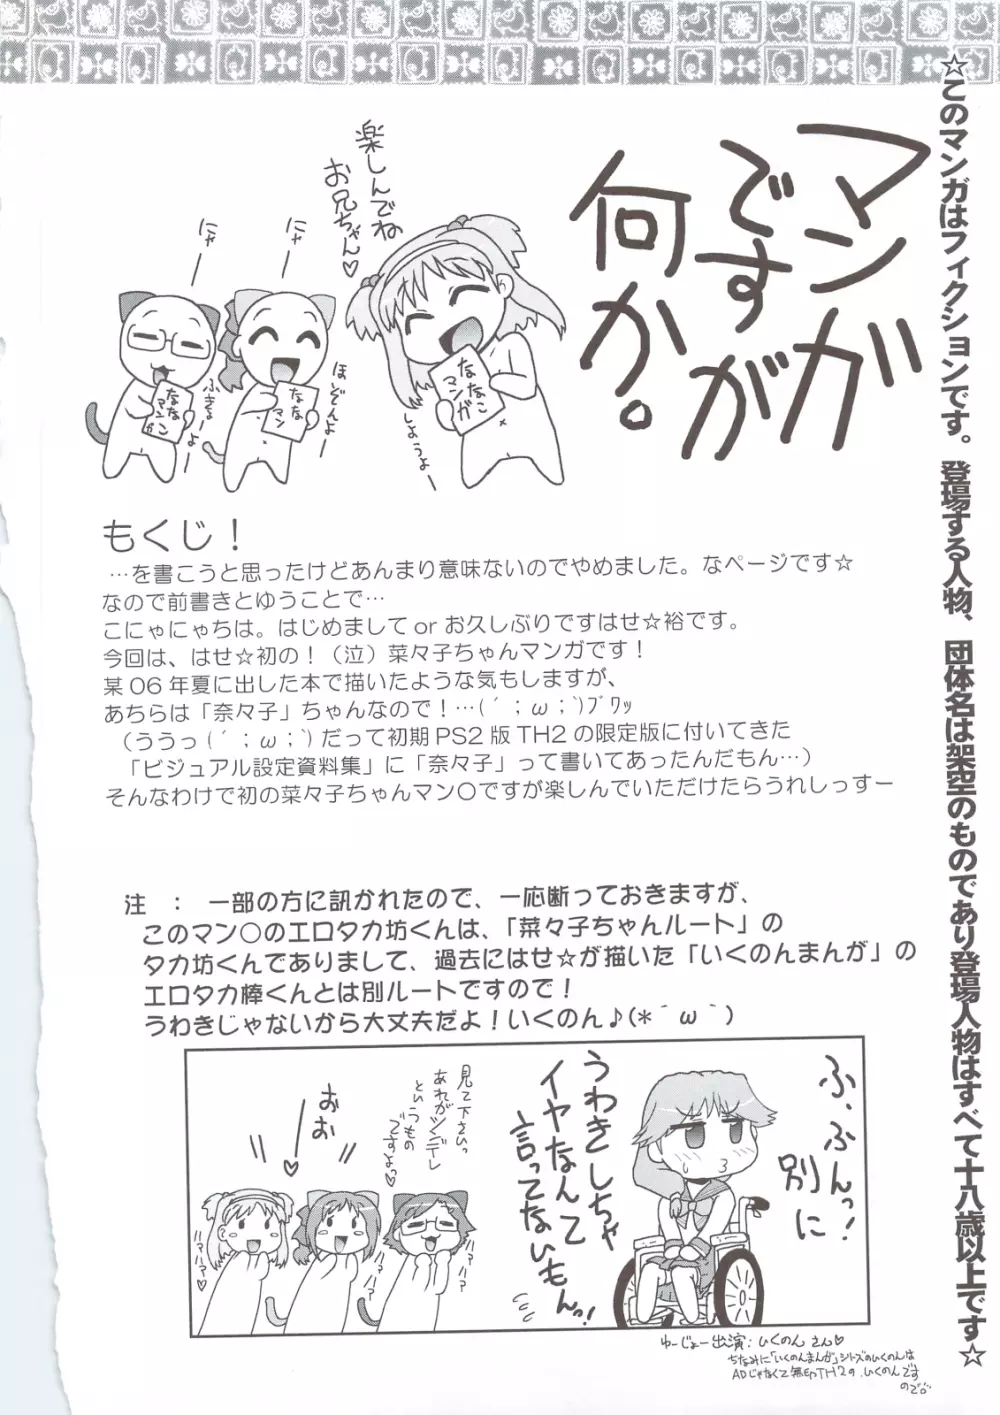 ☆このマンガはフィクションです。登場する人物、団体名は架空のものであり登場人物はすべて十八歳以上です☆
マンガ
ですが
何か。
楽しんでね
お兄ちゃん♡
ななこ
マンガ
しようよー
にゃー
なな
マン
ほしぞんよー
にゃー
なな
マン
もくじ！
…を書こうと思ったけどあんまり意味ないのでやめました。なページです☆
なので前書きとゆうことで…
こにゃにゃちは。はじめまして or お久しぶりですはせ☆裕です。
今回は、はせ☆初の！（泣）菜々子ちゃんマンガです！
某06年夏に出した本で描いたような気もしますが、
あちらは「奈々子」ちゃんなので！…(´；ω；`)ﾌﾞﾜｯ
（ううっ(´；ω；`)だって初期PS2版TH2の限定版に付いてきた
「ビジュアル設定資料集」に「奈々子」って書いてあったんだもん…）
そんなわけで初の菜々子ちゃんマン〇ですが楽しんでいただけたらうれしっすー
注　：　一部の方に訊かれたので、一応断っておきますが、
このマン〇のエロタカ坊くんは、「菜々子ちゃんルート」の
タカ坊くんでありまして、過去にはせ☆が描いた「いくのんまんが」の
エロタカ棒くんとは別ルートですので！
うわきじゃないから大丈夫だよ！いくのん♪(*´ω｀)
ふ、ふんっ！
別に
うわきしちゃ
イヤなんて
言ってないもんっ！
見て下さいっ
あれがツンデレ
というもの
ですよっ♡
おお
♡
ゆーじょー出演：いくのん さん♡
ちなみに「いくのんまんが」シリーズのいくのんは
ADじゃなくて無印TH2の、いくのんです
ので。